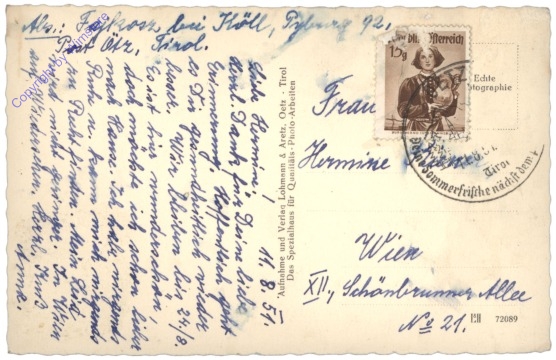 Abs.: bei Höll, Piburg 92,
Post Ötz, Tirol.
14. 8. 51.
Liebe Hermine!
Herzl. Dank für Deine liebe
Erinnerung. Hoffentlich geht
es Dir gesundheitlich wieder
besser. Wir bleiben bis 24/8
Es ist hier wunderschön
doch möchte ich schon lieber
zu Hause sein. Ich habe nirgends
Ruhe u. kann mich nirgends
zu Recht finden. Mein Leid
wird nicht geringer. In Wien
auf Wiedersehen, Herzl. Gruß
Aufnahme und Verlag Lohmann & Aretz, Oetz - Tirol
Das Spezialhaus für Qualitäts-Photo-Arbeiten
Echte
Photographie
15g
Österreich
Tirol
sommerfrische nächst dem
Frau
Hermine
Wien
XII., Schönbrunner Allee
No 21.
72089
Copyright by Filmgate